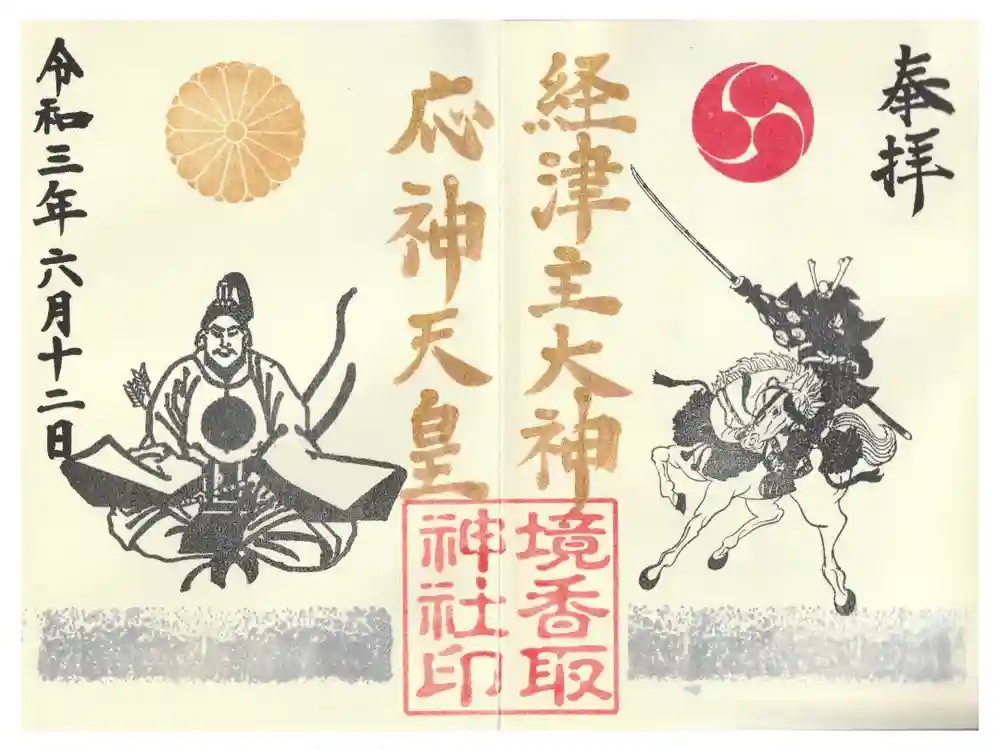 奉拝
経津主大神
応神天皇
境香取
神社印
令和三年六月十二日